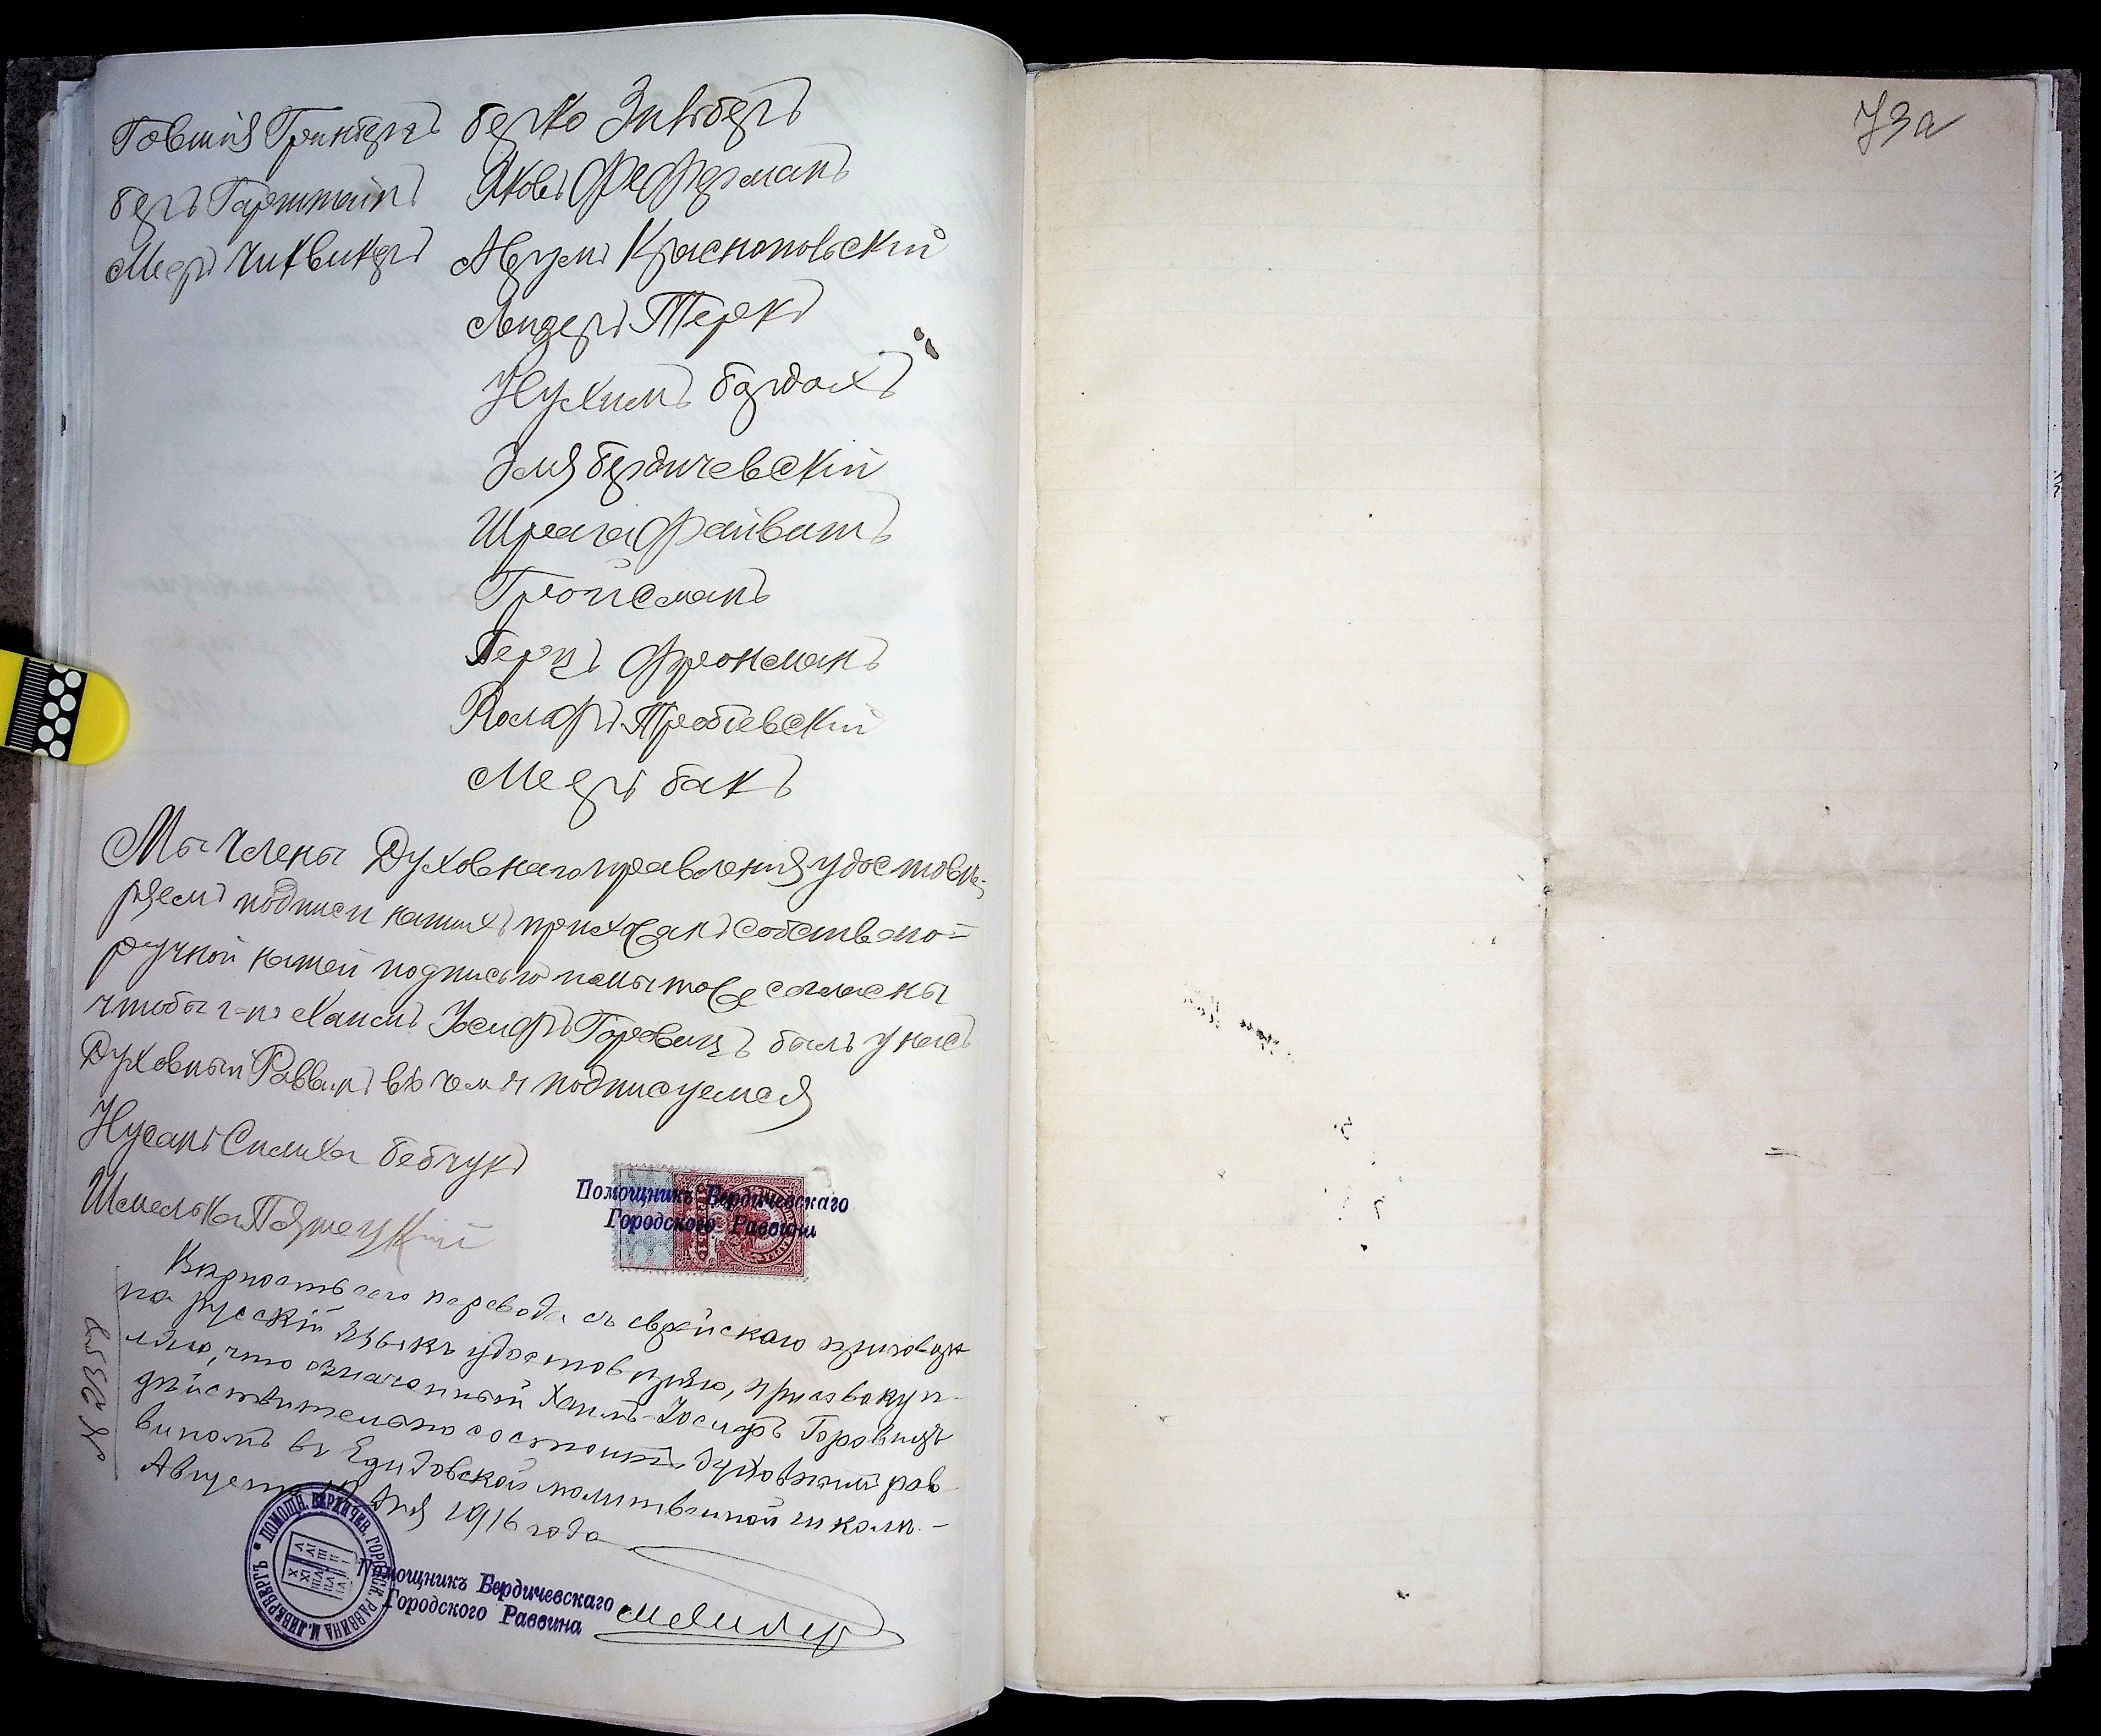 Говшія Гринбергъ
Беръ Горенштейнъ
Мееръ Чиквинеръ
Берко Зильберъ
Яковъ Феферманъ
Аврумъ Краснопольскій
Лизеръ Теркъ
Нухимъ Бардахъ
Эля Бердичевскій
Шрага Файвишъ
Гройсманъ
Герцъ Фроимманъ
Іосифъ Трибіевскій
Мееръ Бакъ
Мы члены Духовнаго правленія удостовѣ-
ряемъ подписи нашихъ прихожанъ собствено-
ручной нашей подписью и мы тоже согласны
чтобы г-нъ Хаимъ Іосифъ Горовицъ былъ у насъ
Духовный Раввинъ въ чемъ и подписуемся
Нусанъ Симха Бебчукъ
Шмелько
Помощникъ Бердичевскаго
Городского Раввина
Вѣрность сего перевода съ еврейскаго приговора
на русскій языкъ удостовѣряю, присовокуп-
ляю, что означенный Хаимъ-Іосифъ Горовицъ
дѣйствительно состоитъ духовнымъ рав-
виномъ въ Едидовской молитвенной школѣ.-
Августа дня 1916 года
№
ПОМОЩН. БЕРДИЧЕВ. ГОРОДСК. РАВВИНА М. ЛИБЕРБЕРГЪ
Помощникъ Бердичевскаго
Городского Раввина
73а